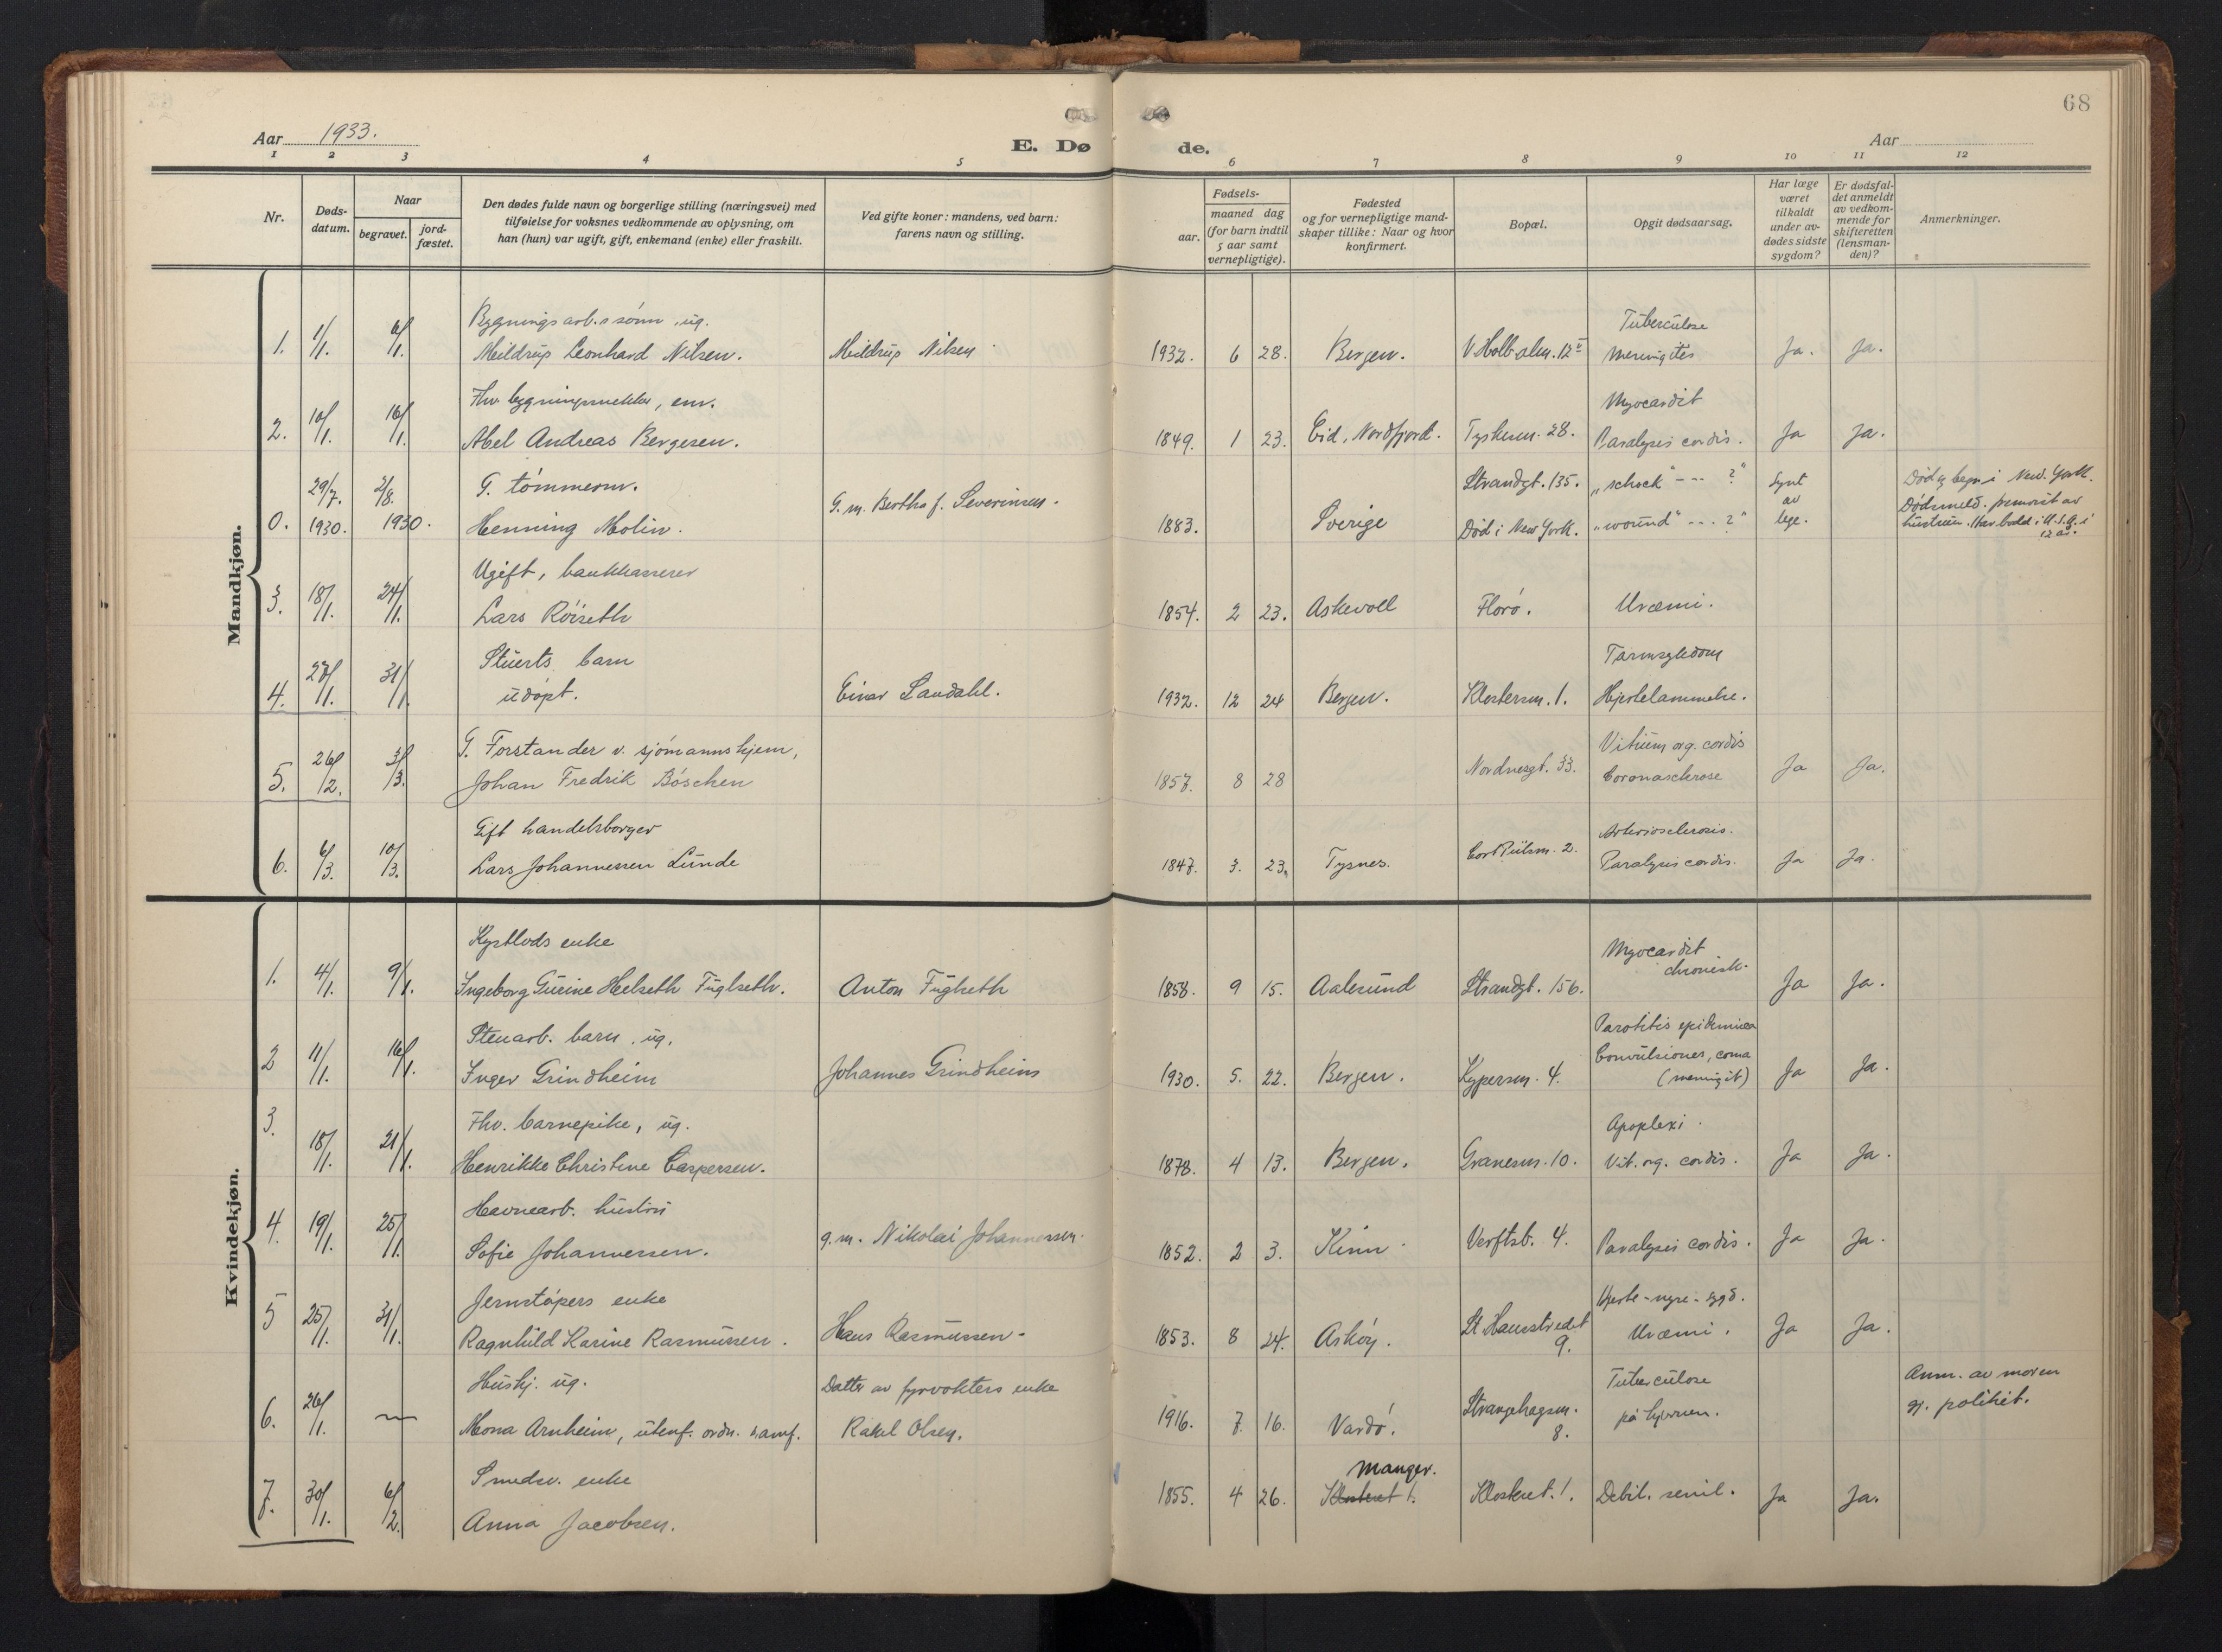 68
Aar 1933.
E. Dø de.
Aar
1 2 3 4 5 6 7 8 9 10 11 12
Nr.
Døds-
datum.
Naar
begravet.
jord-
fæstet.
Den dødes fulde navn og borgerlige stilling (næringsvei) med
tilføielse for voksnes vedkommende av oplysning, om
han (hun) var ugift, gift, enkemand (enke) eller fraskilt.
Ved gifte koner: mandens, ved barn:
farens navn og stilling.
Fødsels-
aar.
maaned dag
(for barn indtil
5 aar samt
vernepligtige).
Fødested
og for vernepligtige mand-
skaper tillike: Naar og hvor
konfirmert.
Bopæl.
Opgit dødsaarsag.
Har læge
været
tilkaldt
under av-
dødes sidste
sygdom?
Er dødsfal-
det anmeldt
av vedkom-
mende for
skifteretten
(lensman-
den)?
Anmerkninger.
Mandkjøn.
Bygningsarb.s sønn, ug. Tuberculose
1. 1/1. 6/1. Meildrup Leonhard Nilsen. Meildrup Nilsen 1932. 6 28. Bergen. V. Holb.alm. 12 meningites Ja. Ja.
Fhv. bygningssnekker, enr. Myocardit
2. 10/1. 16/1. Abel Andreas Bergesen. 1849. 1 23. Eid, Nordfjord. Tyskesm. 28. Paralysis cordis. Ja Ja.
29/7. 2/8. G. tømmerm. G. m. Bertha f. Severinsen. Strandgt. 135. „schock" --- ?" Synt av lege. Død og begr. i New York.
0. 1930. 1930. Henning Molin. 1883. Sverige Død i New York. „wound" --- ?" Dødsmeld. fremvist av
hustruen. Har bodd i U.S.A. i
12 år.
Ugift, bankkasserer
3. 18/1. 24/1. Lars Röiseth 1854. 2 23. Askevoll Florø. Uræmi.
Stuerts barn Tarmsykdom
4. 27/1. 31/1 udøpt. Einar Sandahl. 1932. 12 24 Bergen. Klostersm. 1. Hjertelammelse.
G. Forstander v. sjømannshjem, Vitium org. cordis
5. 26/2. 3/3. Johan Fredrik Böschen 1857. 8 28 Nordnesgt. 33. Coronasclerose Ja Ja.
Gift handelsborger Arteriosclerosis.
6. 6/3. 10/3. Lars Johannessen Lunde 1847. 3. 23. Tysnes. Cort Piilsm. 2. Paralysis cordis. Ja Ja.
Kvindekjøn.
Kystlods enke Myocardit
chronisk.
1. 4/1. 9/1. Ingeborg Gurine Helseth Fuglseth. Anton Fuglseth 1858. 9 15. Aalesund Strandgt. 156. Ja Ja.
Stenarb. barn, ug. Parotitis epidemica
2 11/1. 16/1. Inger Grindheim Johannes Grindheim 1930. 5. 22. Bergen. Kypersm. 4. Convulsioner, coma
(meningit) Ja Ja.
3. Fhv. barnepike, ug. Apoplexi.
18/1. 21/1. Henrikke Christine Caspersen. 1878. 4 13. Bergen. Granesm. 10. Vit. org. cordis. Ja Ja.
Havnearb. hustru
4. 19/1. 25/1. Sofie Johannessen. g. m. Nikolai Johannessen. 1852. 2 3. Kinn Verftsb. 4. Paralysis cordis. Ja Ja.
Jernstøpers enke Hjerte-nyre-sygd.
5 25/1. 31/1. Ragnhild Karine Rasmussen. Hans Rasmussen. 1853. 8 24. Askøy. St. Hansstredet
9. Uræmi. Ja Ja.
Hushj. ug. Datter av fyrvokters enke Tuberculose Anm. av moren
6. 26/1. — Mona Arnheim, utenf. ordn. samf. Rakel Olsen. 1916. 7. 16. Vardö. Strangehagsm.
8. på hjernen. gj. politiet.
Smedsv. enke Manger.
7. 30/1. 6/2. Anna Jacobsen. 1855. 4 26. Klosteret 1. Klosteret. 1. Debil. senil. Ja Ja.